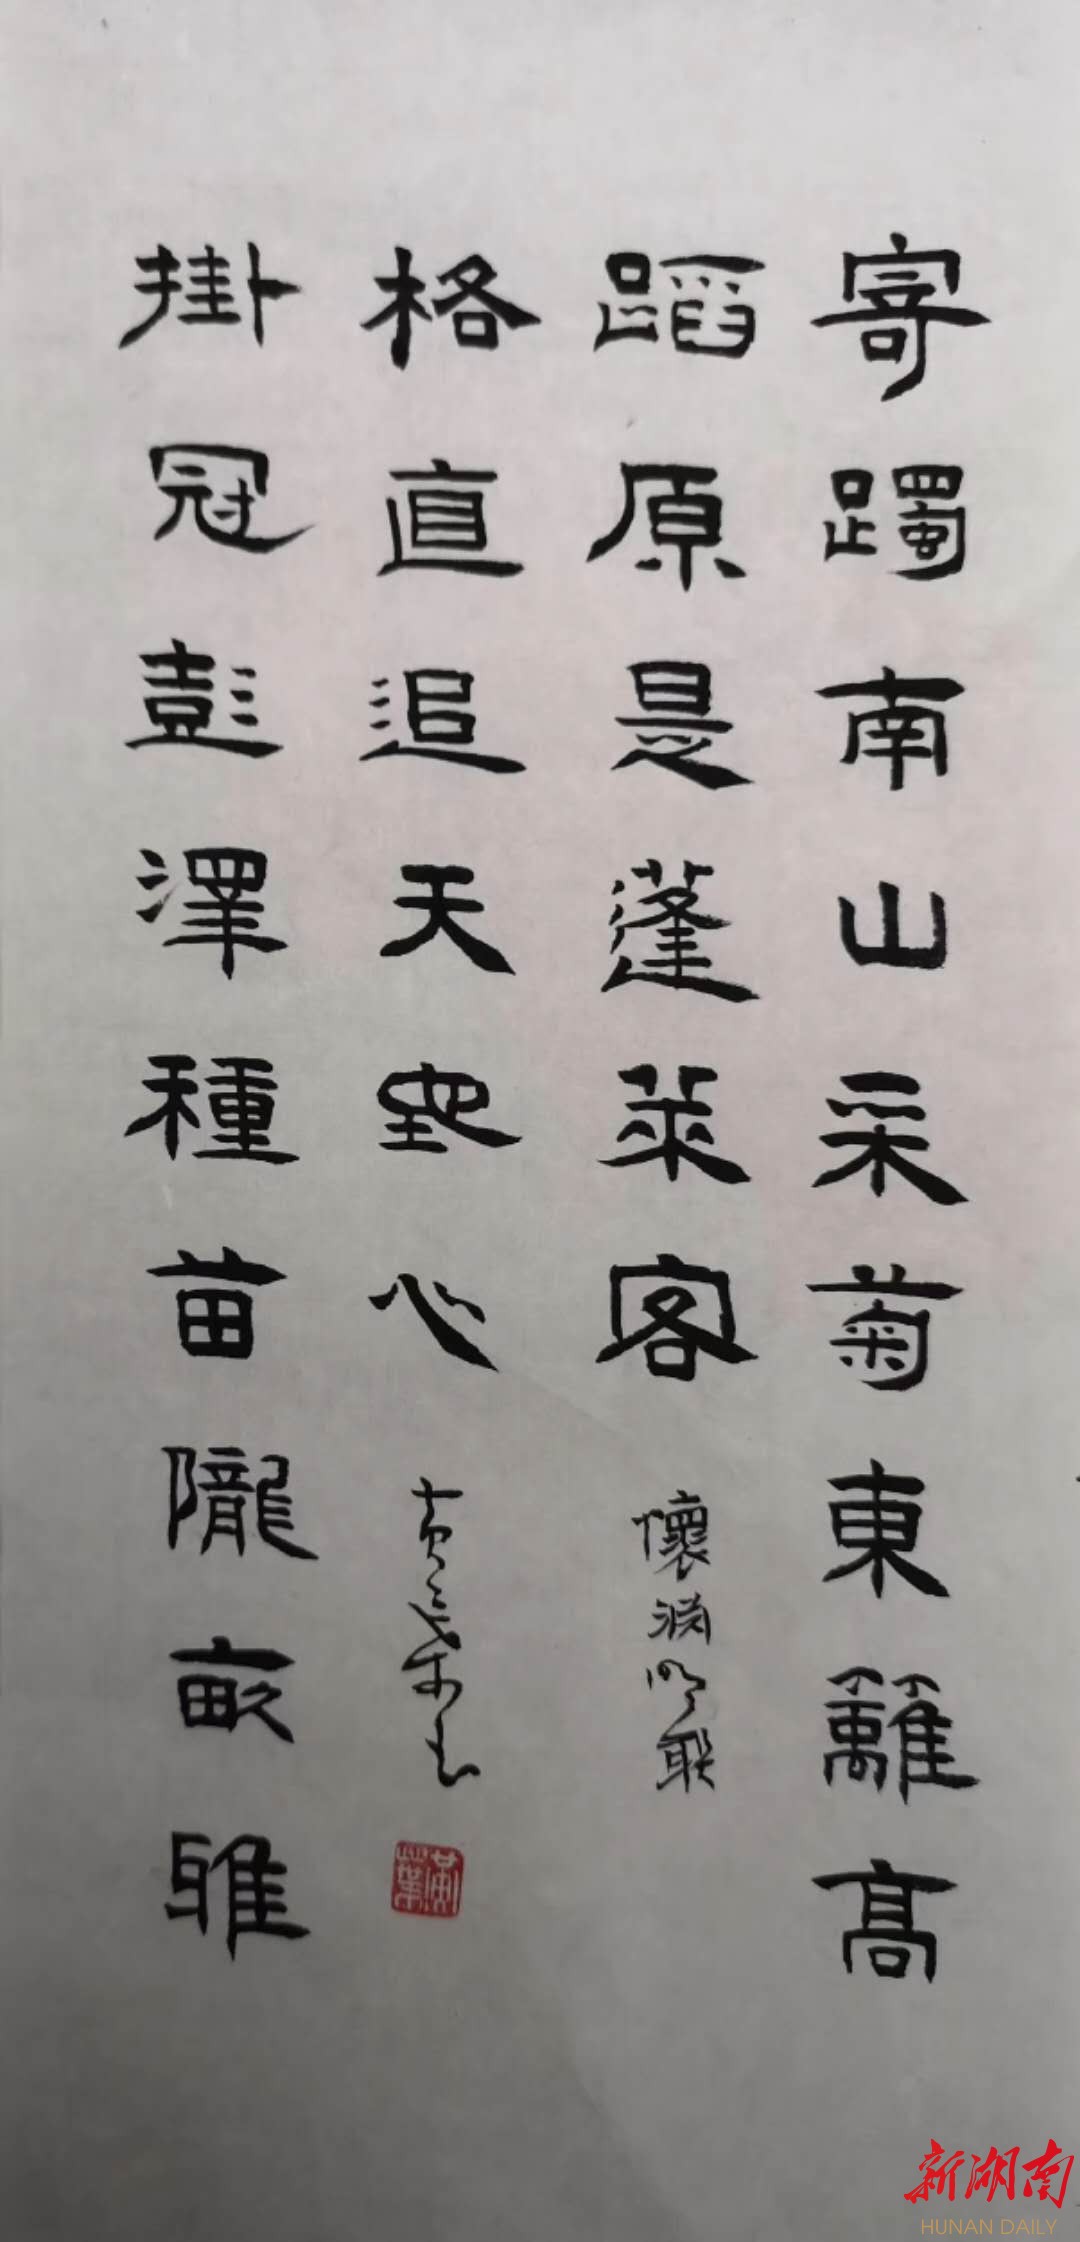 寄躅南山采菊東籬高
蹈原是蓬萊客
懷淵明聯
掛冠彭澤種苗隴畝雅
格直追天地心
新湖南
HUNAN DAILY